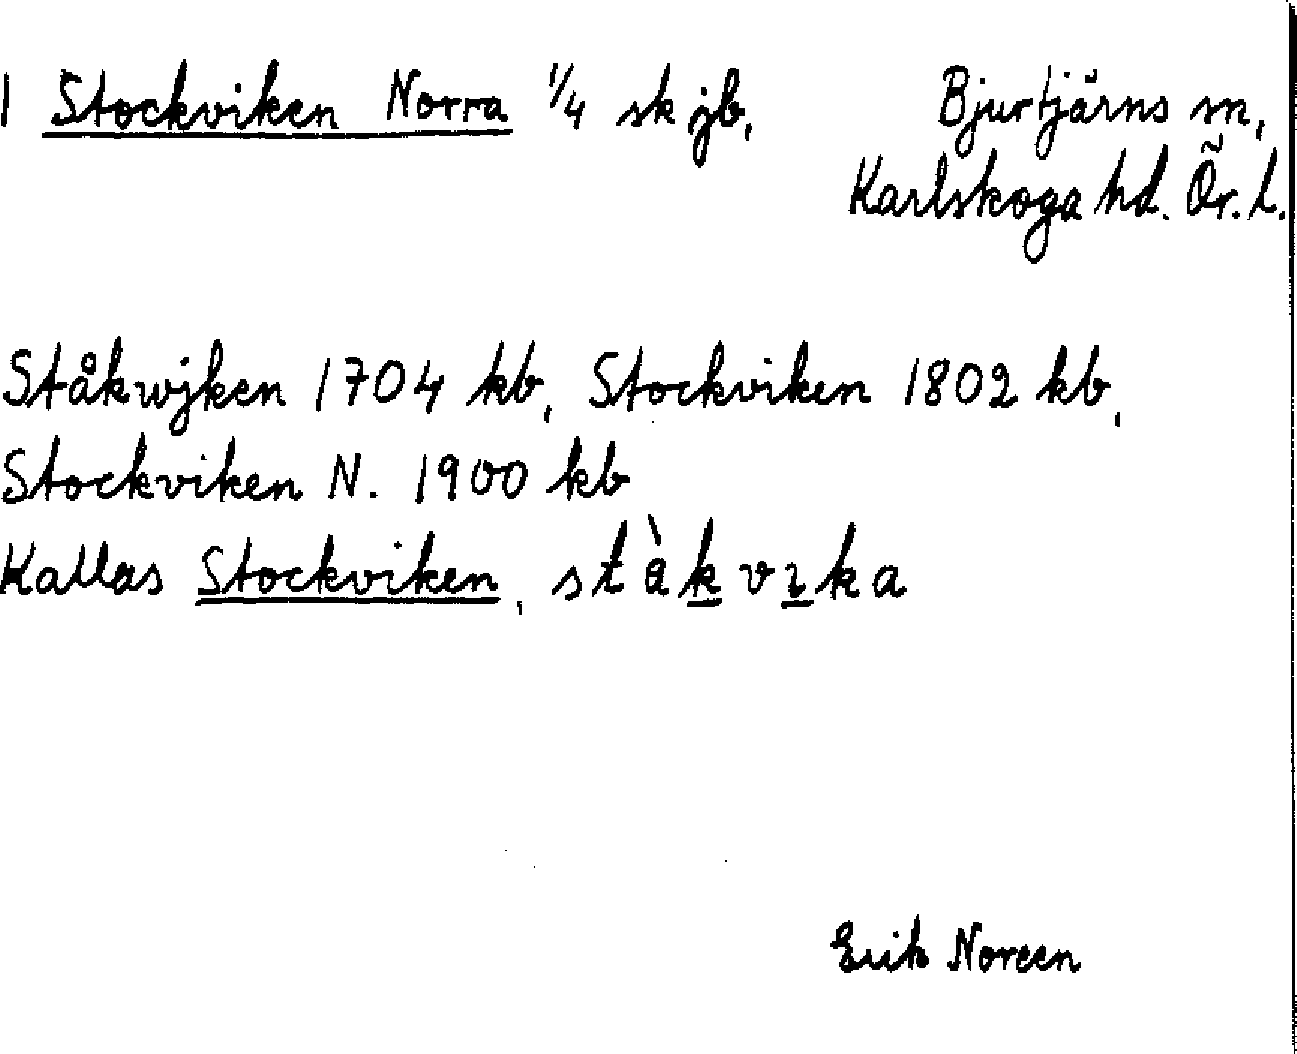 1 Stockviken Norra 1/4 sk jb, Bjurtjärns sn,
Karlskoga hd. Ör. l.
Ståkwjken 1704 kb, Stockviken 1802 kb,
Stockviken N. 1900 kb
Kallas Stockviken, stàkvıka
Erik Noreen